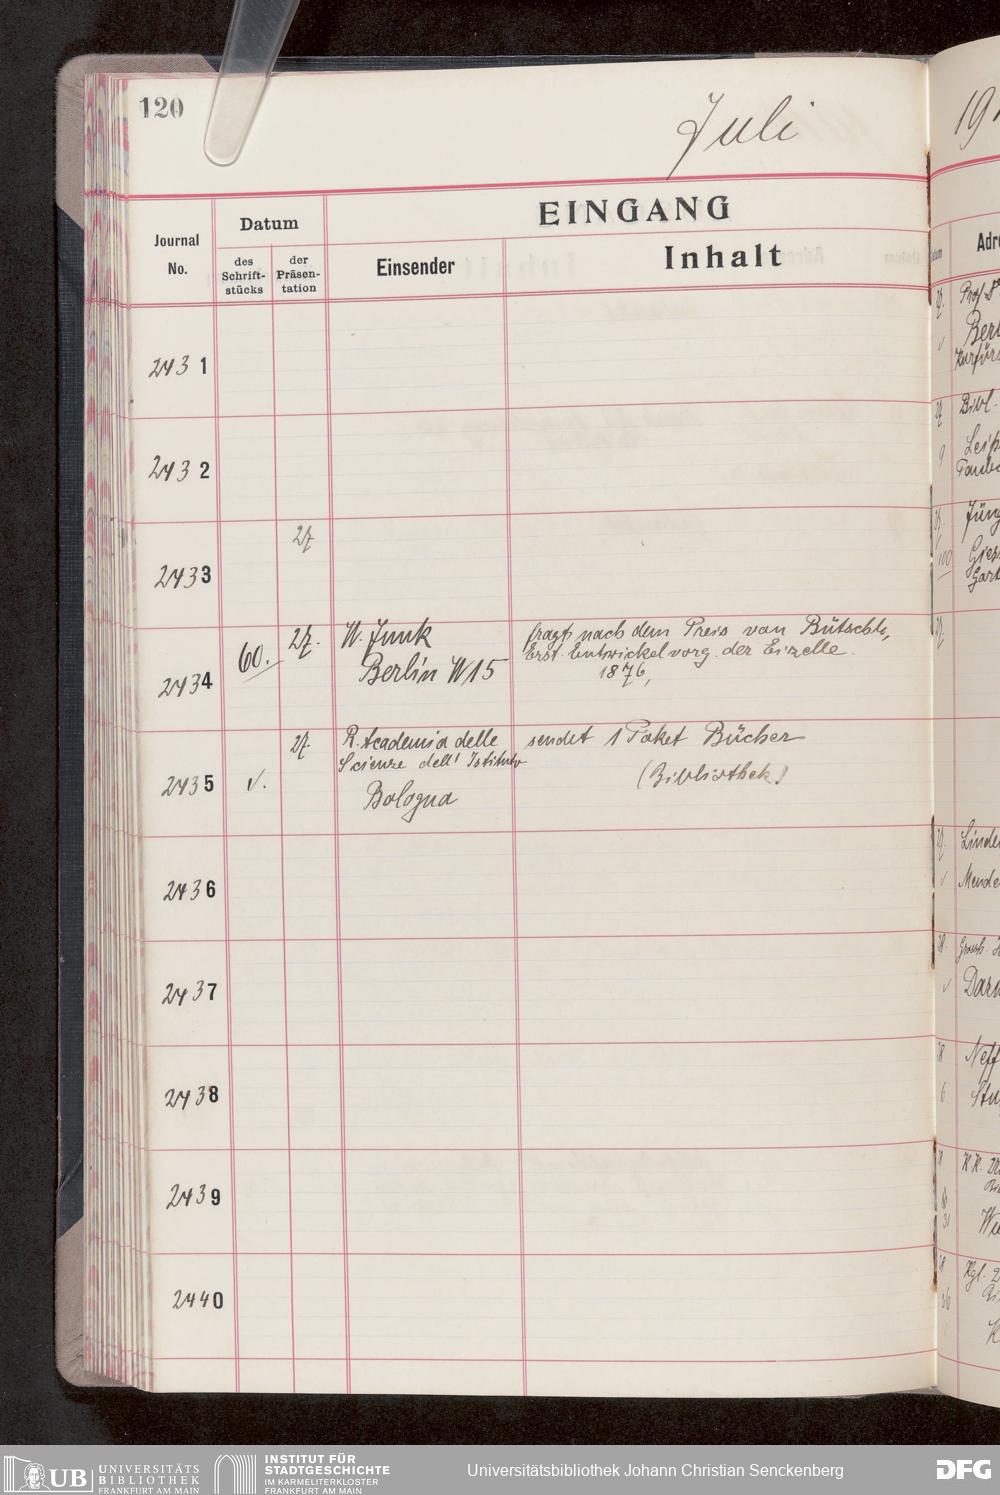 120
Juli
EINGANG
Datum
Journal
No.
des
Schrift-
stücks
der
Präsen-
tation
Einsender
Inhalt
2431
2432
2433
27
2434
60.
27.
W. Junk
Berlin W15
fragt nach dem Preis von Bütschli,
Erst. Entwickelvorg. der Eizelle.
1876,
2435
√.
27.
R. Academia delle
Scienze dell' Istituto
Bologna
sendet 1 Paket Bücher
(Bibliothek)
2436
2437
2438
2439
2440
19
Adre
Prof Dr
Berl
Kurfürs
Bibl.
Leip
Linde
Mende
Neff
UB
UNIVERSITÄTS
BIBLIOTHEK
FRANKFURT AM MAIN
INSTITUT FÜR
STADTGESCHICHTE
IM KARMELITERKLOSTER
FRANKFURT AM MAIN
Universitätsbibliothek Johann Christian Senckenberg
DFG